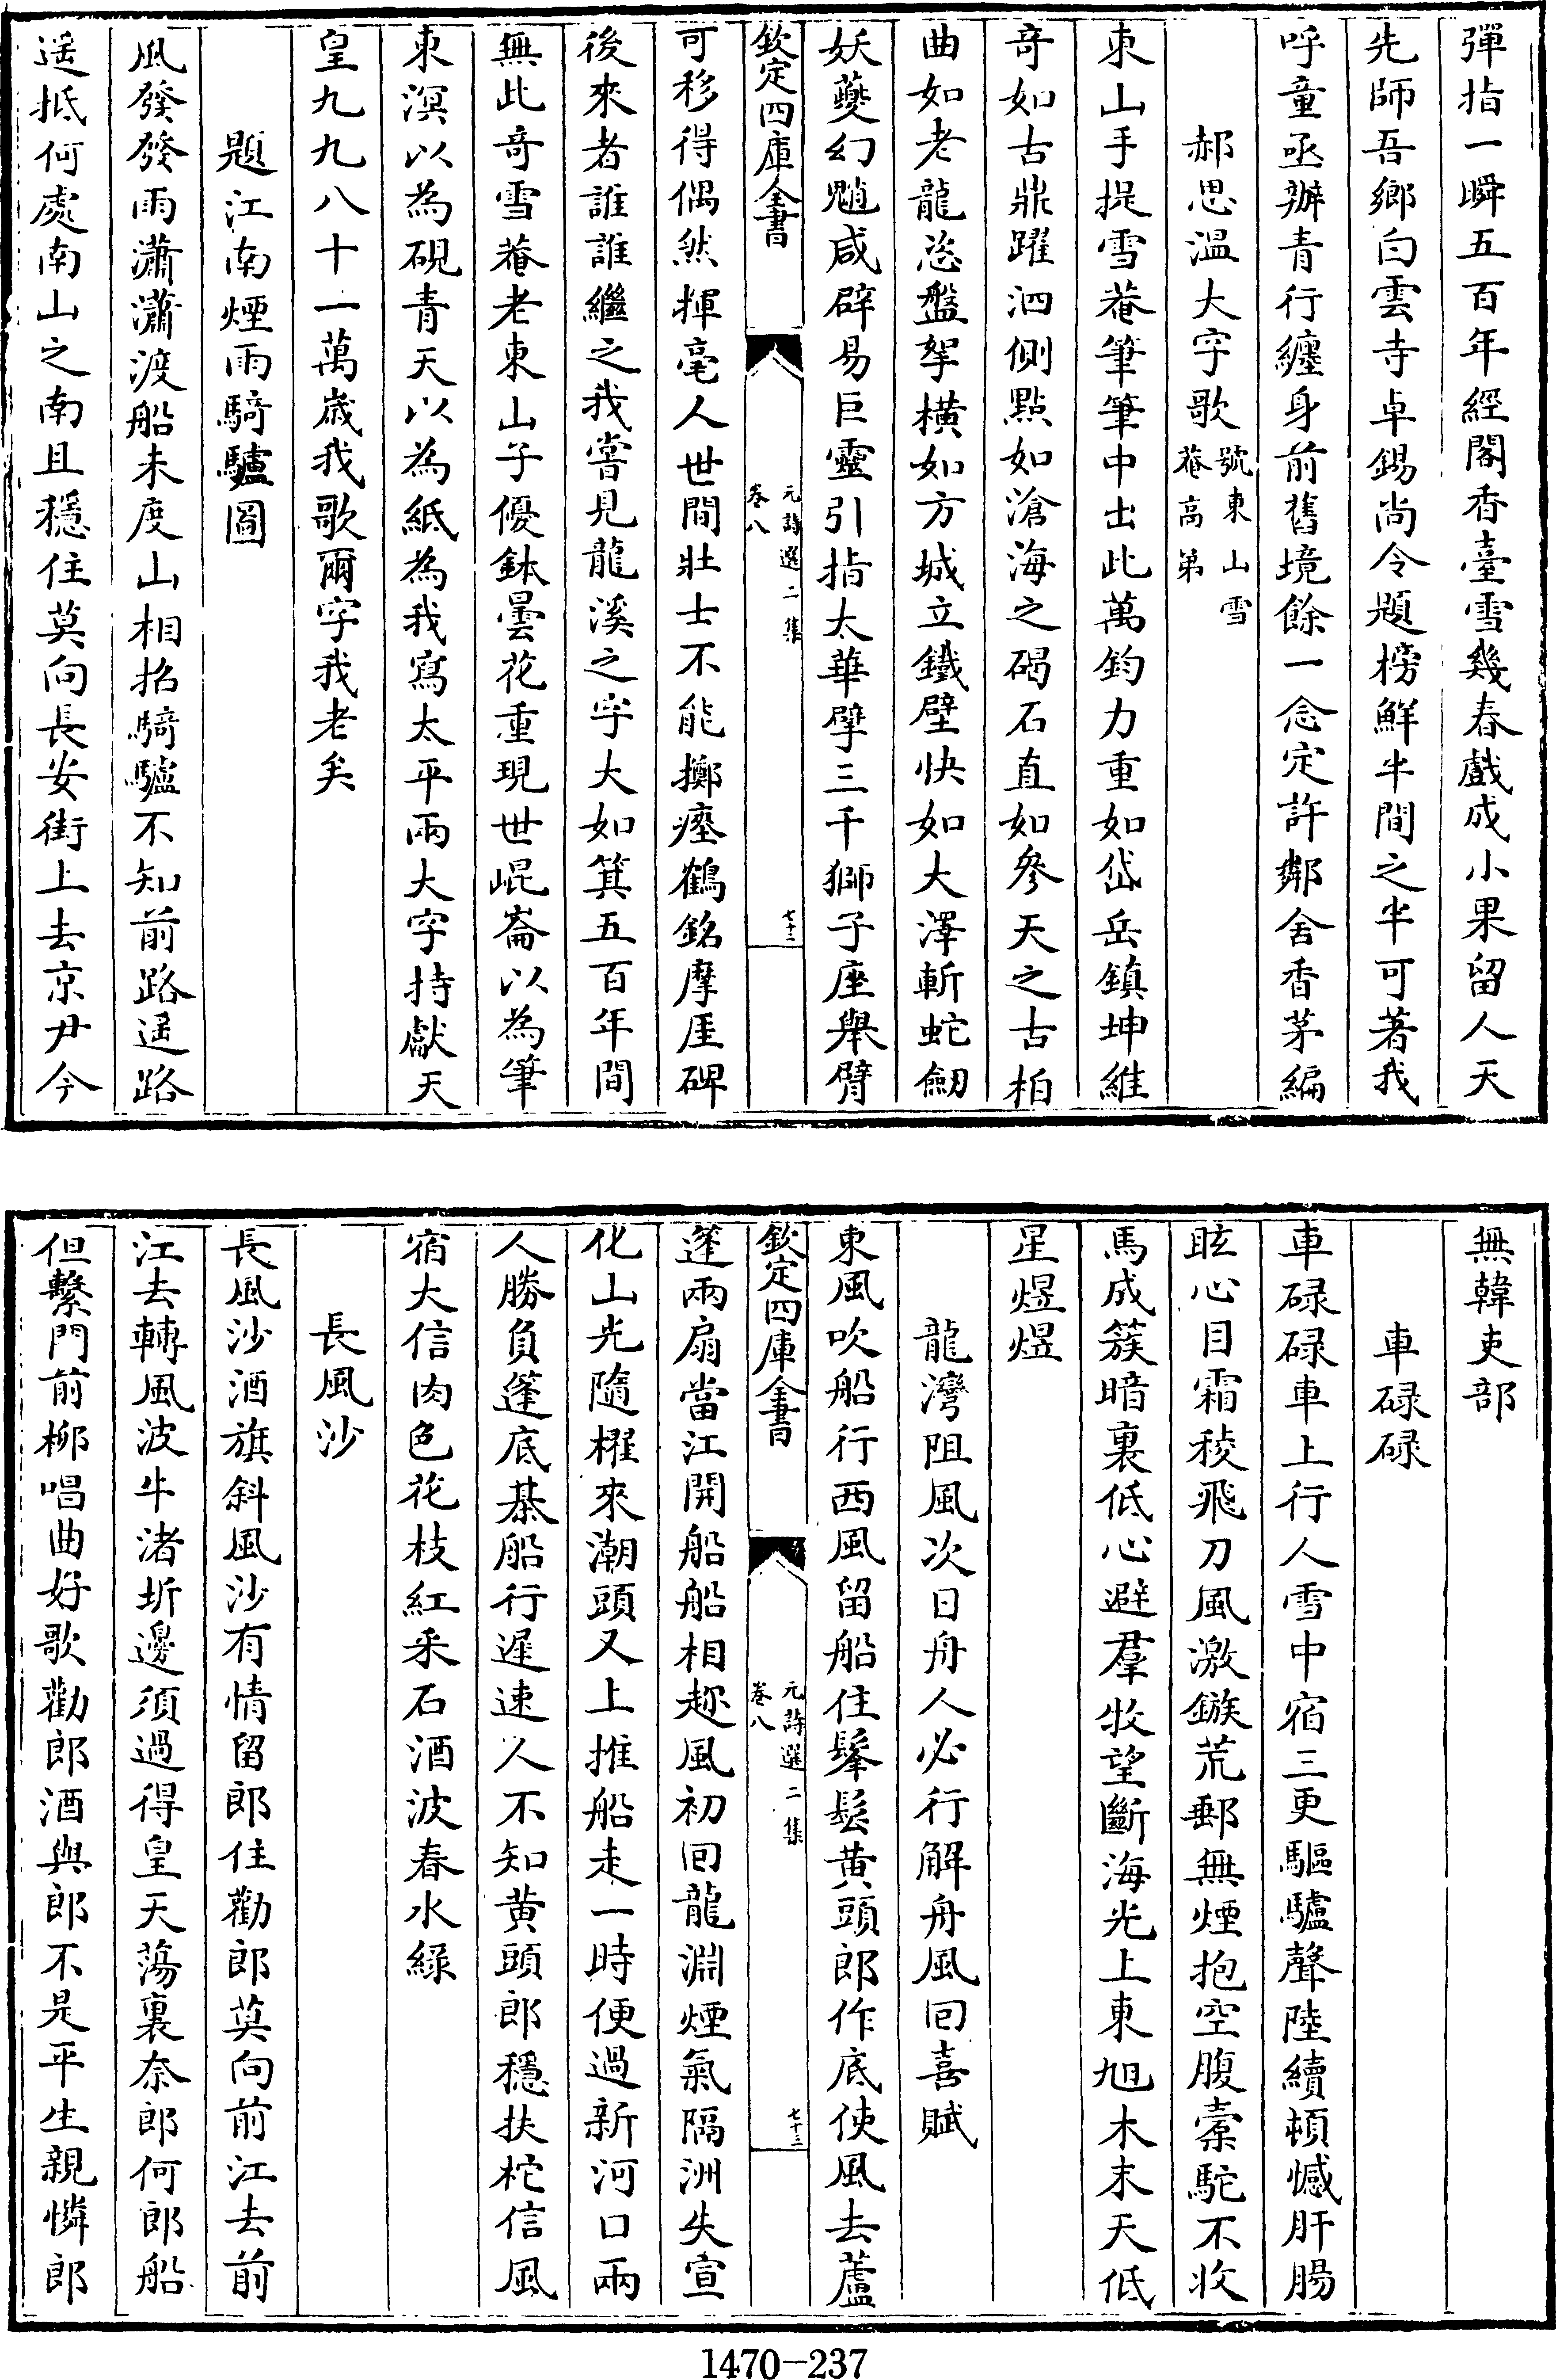 彈指一瞬五百年經閣香臺雪幾春戲成小果留人天
先師吾鄉白雲寺卓錫尚令題榜鮮半間之半可著我
呼童亟辦青行纏身前舊境餘一念定許鄰舍香茅編
郝思溫大字歌號東山雪菴高弟
東山手捉雪菴筆筆中出此萬鈞力重如岱岳鎮坤維
奇如古鼎躍泗側點如滄海之碣石直如參天之古柏
曲如老龍恣盤挐橫如方城立鐵壁快如大澤斬蛇劒
妖夔幻魈咸辟易巨靈引指太華擘三千獅子座舉臂
欽定四庫全書
元詩選二集
卷八
七十二
可移得偶然揮毫人世間壯士不能擲瘞鶴銘摩厓碑
後來者誰誰繼之我嘗見龍溪之字大如箕五百年間
無此奇雪菴老東山子優鉢曇花重現世崐崙以為筆
東溟以為硯青天以為紙為我寫太平兩大字持獻天
皇九九八十一萬歲我歌爾字我老矣
題江南煙雨騎驢圖
風發發雨瀟瀟渡船未度山相招騎驢不知前路遥路
遥抵何處南山之南且穩住莫向長安街上去京尹今
無韓吏部
車碌碌
車碌碌車上行人雪中宿三更驅驢聲陸續頓憾肝腸
眩心目霜稜飛刀風激鏃荒郵無煙抱空腹橐駝不收
馬成簇暗裏低心避羣牧望斷海光上東旭木末天低
星煜煜
龍灣阻風次日舟人必行解舟風回喜賦
東風吹船行西風留船住鬔鬆黄頭郎作底使風去蘆
蓬兩扇當江開船船相趂風初回龍淵煙氣隔洲失宣
化山光隨櫂來潮頭又上推船走一時便過新河口兩
人勝負蓬底棊船行遲速人不知黄頭郎穩扶柁信風
宿大信肉色花枝紅采石酒波春水綠
長風沙
長風沙酒旗斜風沙有情留郎住勸郎莫向前江去前
江去轉風波牛渚圻邊須過得皇天蕩裏奈郎何郎船
但繫門前柳唱曲好歌勸郎酒與郎不是平生親憐郎
欽定四庫全書
元詩選二集
卷八
七十三
1470-237